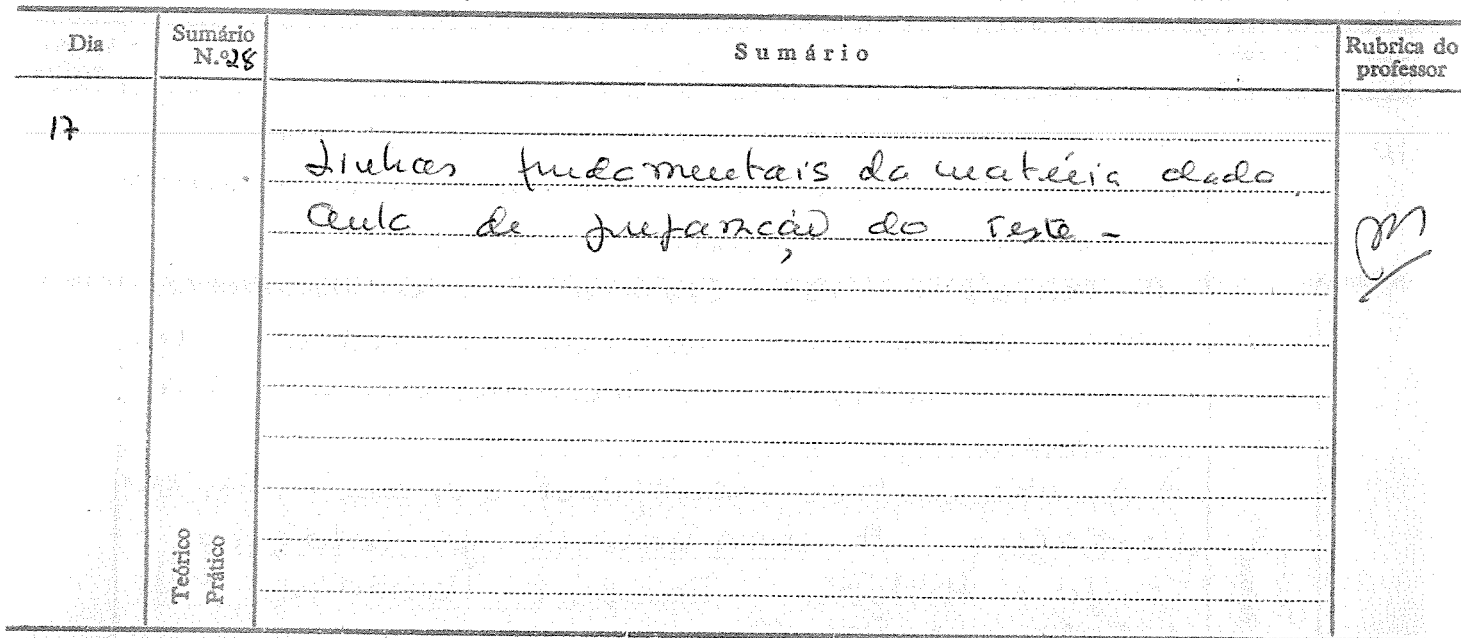 Dia
Sumário
N.º 28
Sumário
Rubrica do
professor
17
Linhas fundamentais da matéria dada.
Aula de preparação do Teste -
Teórico
Prático